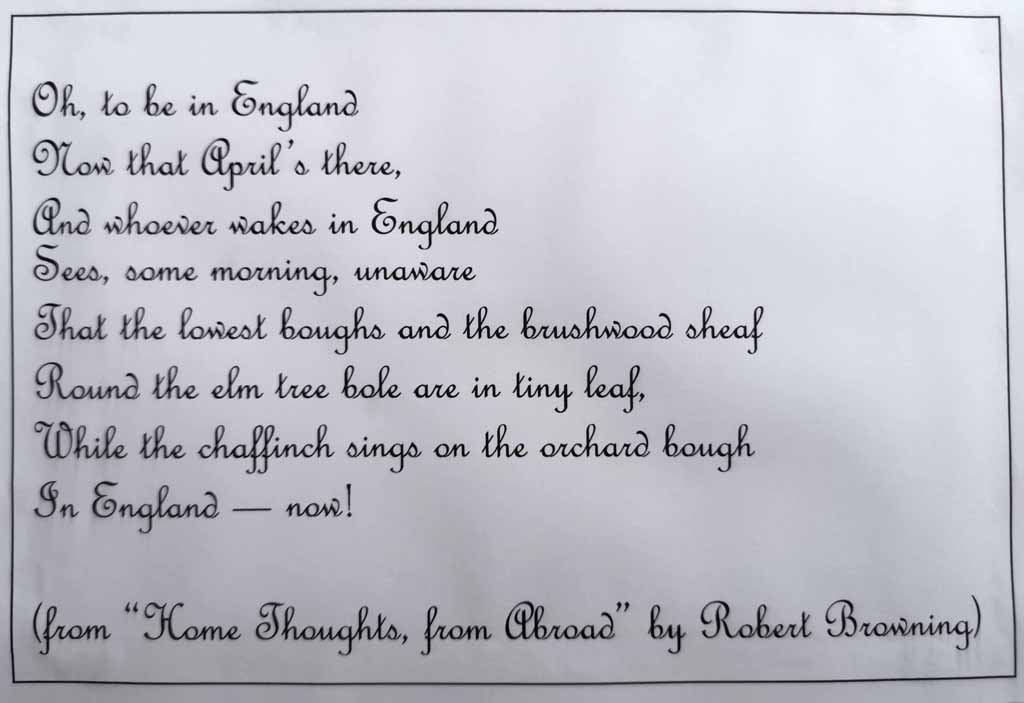 Oh, to be in England
Now that April's there,
And whoever wakes in England
Sees, some morning, unaware
That the lowest boughs and the brushwood sheaf
Round the elm tree bole are in tiny leaf,
While the chaffinch sings on the orchard bough
In England — now!
(from “Home Thoughts, from Abroad” by Robert Browning)